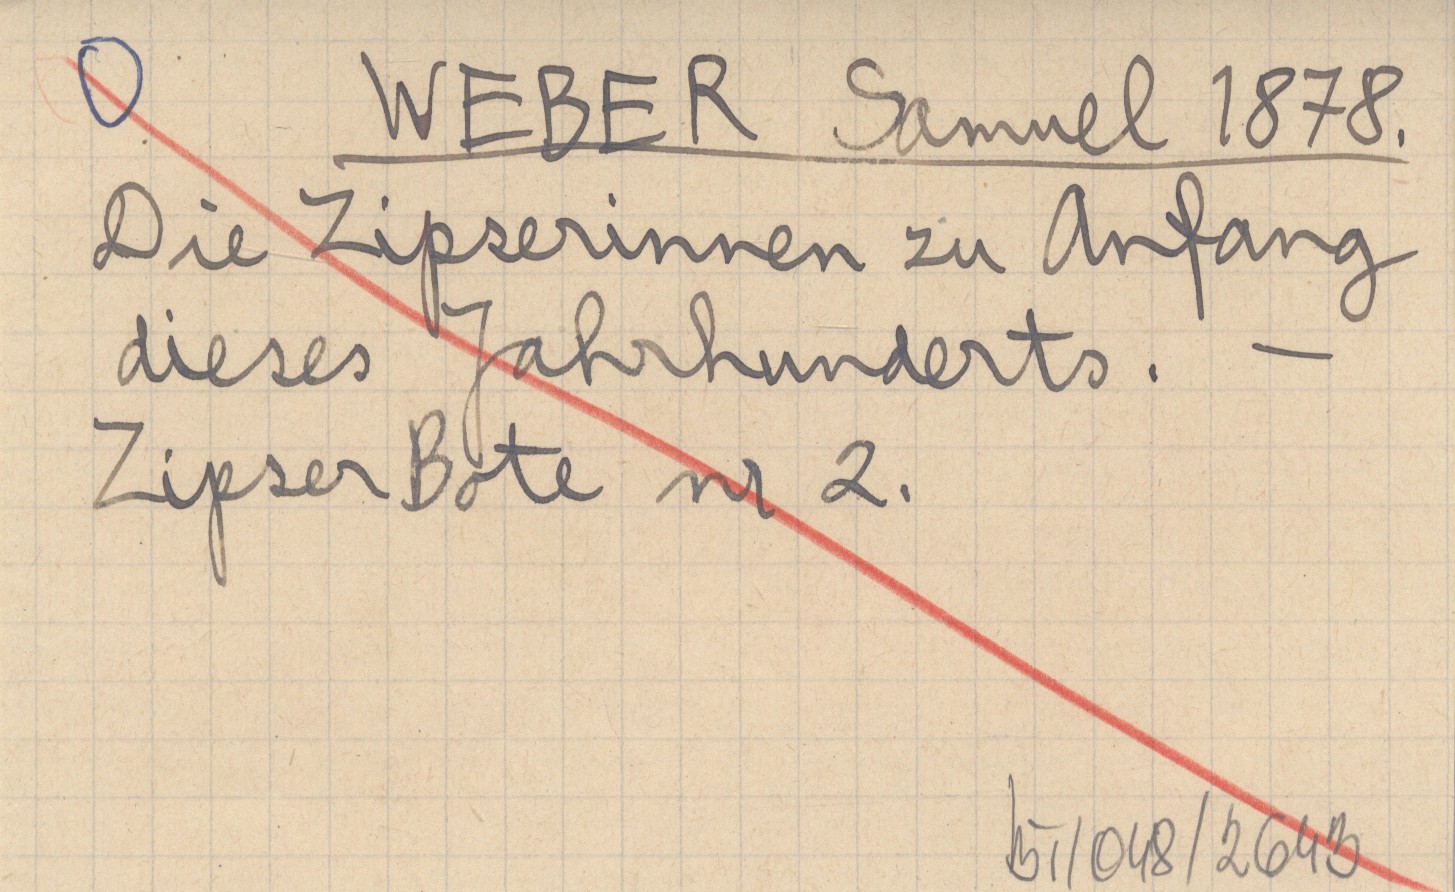 WEBER Samuel 1878.
Die Zipserinnen zu Anfang
dieses Jahrhunderts. —
Zipser Bote nr 2.